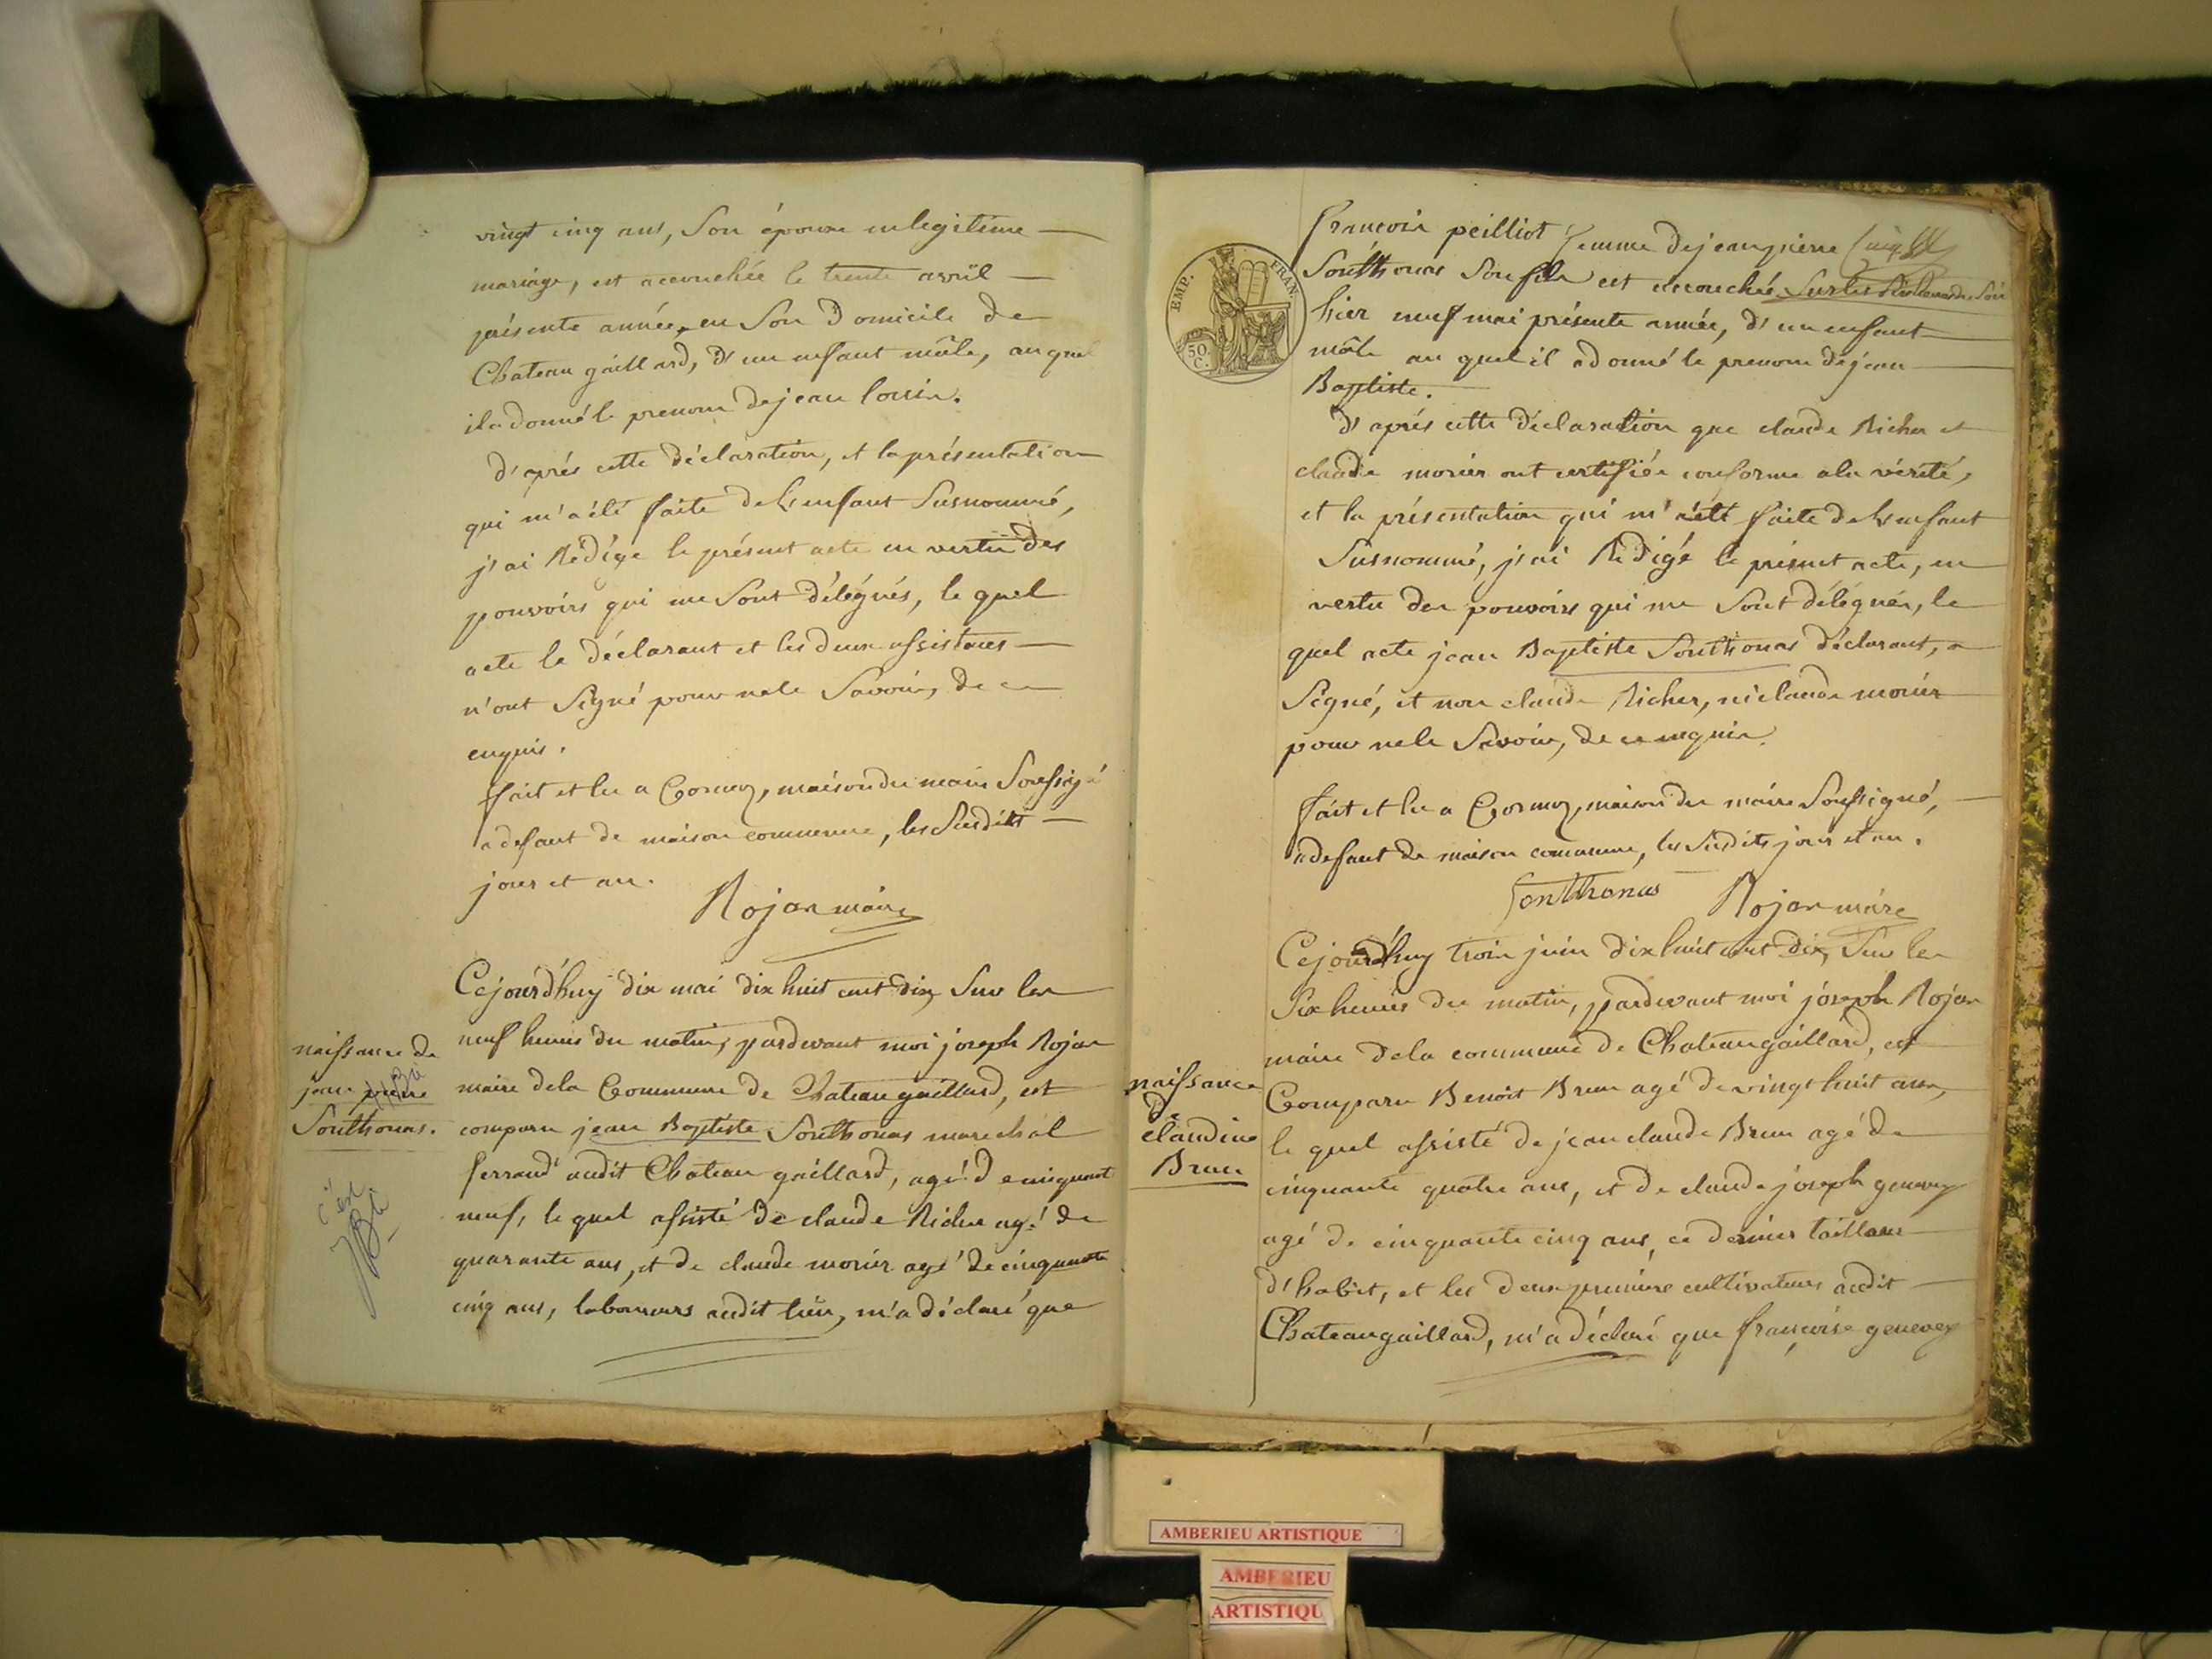 vingt cinq ans, Son épouse en legitime
mariage, est accouchée le trente avril
présente année, en Son Domicile de
Chateau gaillard, d'un enfant mâle, au quel
il a donné le prenom de jean louis.
d'après cette déclaration, et la présentation
qui m'a été faite de L'enfant Susnommé,
j'ai Rédigé le présent acte en vertu des
pouvoirs qui me Sont délégués, le quel
acte le déclarant et les deux assistans
n'ont Signé pour ne le Savoir, de ce
enquis.
fait et lu a Cormoz, maison du maire Soussigé
a defaut de maison commune, les Susdits
jour et an.
Rojan maire
Cejourd'huy dix mai dix huit cent dix, Sur les
neuf heures du matin, pardevant moi joseph Rojan
maire de la Commune de Chateaugaillard, est
comparu jean Baptiste Sonthonas marechal
ferrand audit Chateau gaillard, agé de cinquant
neuf, le quel assisté de claude Richer agé de
quarante ans, et de claude morier agé de cinquante
cinq ans, laboureurs audit lieu, m'a déclaré que
naissance de
jean pierre
Sonthonas.
c'est
JBte
francois peilliot femme de jean pierre
Sonthonas Son fils est accouchée
hier neuf mai présente année, d'un enfant
mâle au quel il a donné le prenom de jean
Baptiste.
d'après cette déclaration que claude Richer et
claude morier ont certifiée conforme a la vérité,
et la présentation qui m'a été faite de L'enfant
Susnommé, j'ai Rédigé le présent acte, en
vertu des pouvoirs qui me Sont délégués, le
quel acte jean Baptiste Sonthonas déclarant, a
Signé, et non claude Richer, ni claude morier
pour ne le Savoir, de ce enquis.
fait et lu a Cormoz, maison du maire Soussigné,
a defaut de maison commune, les Susdits jour et an.
Sonthonas Rojan maire
Cejourd'huy trois juin dix huit cent dix, Sur les
Six heures du matin, pardevant moi joseph Rojan
maire de la commune de Chateaugaillard, est
Comparu Benoit Brun agé de vingt huit ans,
le quel assisté de jean claude Brun agé de
cinquante quatre ans, et de claude joseph genevey
agé de cinquante cinq ans, ce dernier tailleur
d'habit, et les deux premiers cultivateurs audit
Chateaugaillard, m'a déclaré que françoise genevey
naissance
d
claudine
Brun
EMP. FRAN.
50.
C.
AMBERIEU ARTISTIQUE
AMBERIEU
ARTISTIQU